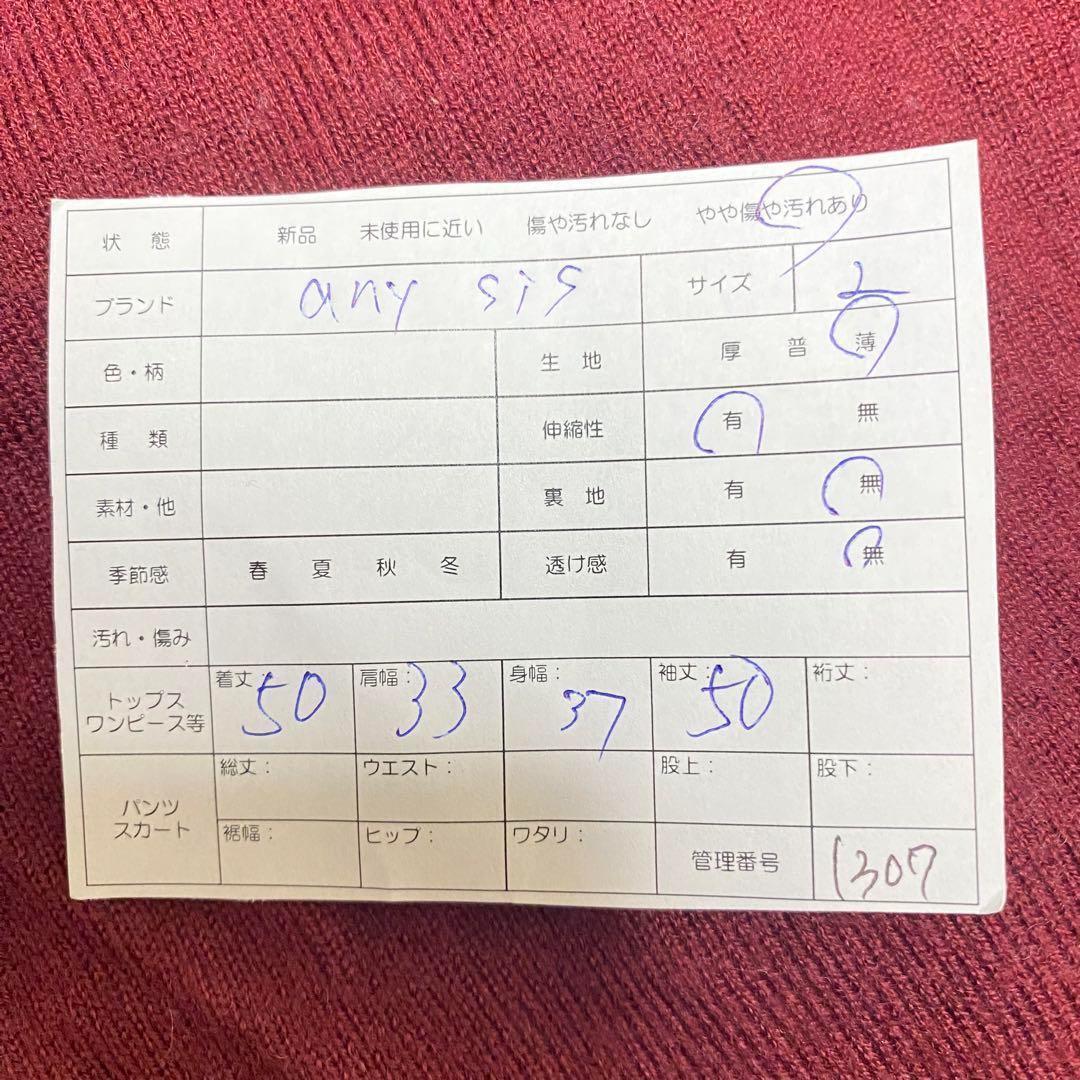 状態 新品 未使用に近い 傷や汚れなし やや傷や汚れあり
ブランド any sis サイズ 2
色・柄 生地 厚 普 薄
種類 伸縮性 有 無
素材・他 裏地 有 無
季節感 春 夏 秋 冬 透け感 有 無
汚れ・傷み
トップス ワンピース等 着丈：50 肩幅：33 身幅：37 袖丈：50 裄丈：
パンツ スカート 総丈： ウエスト： 股上： 股下：
裾幅： ヒップ： ワタリ： 管理番号 1307